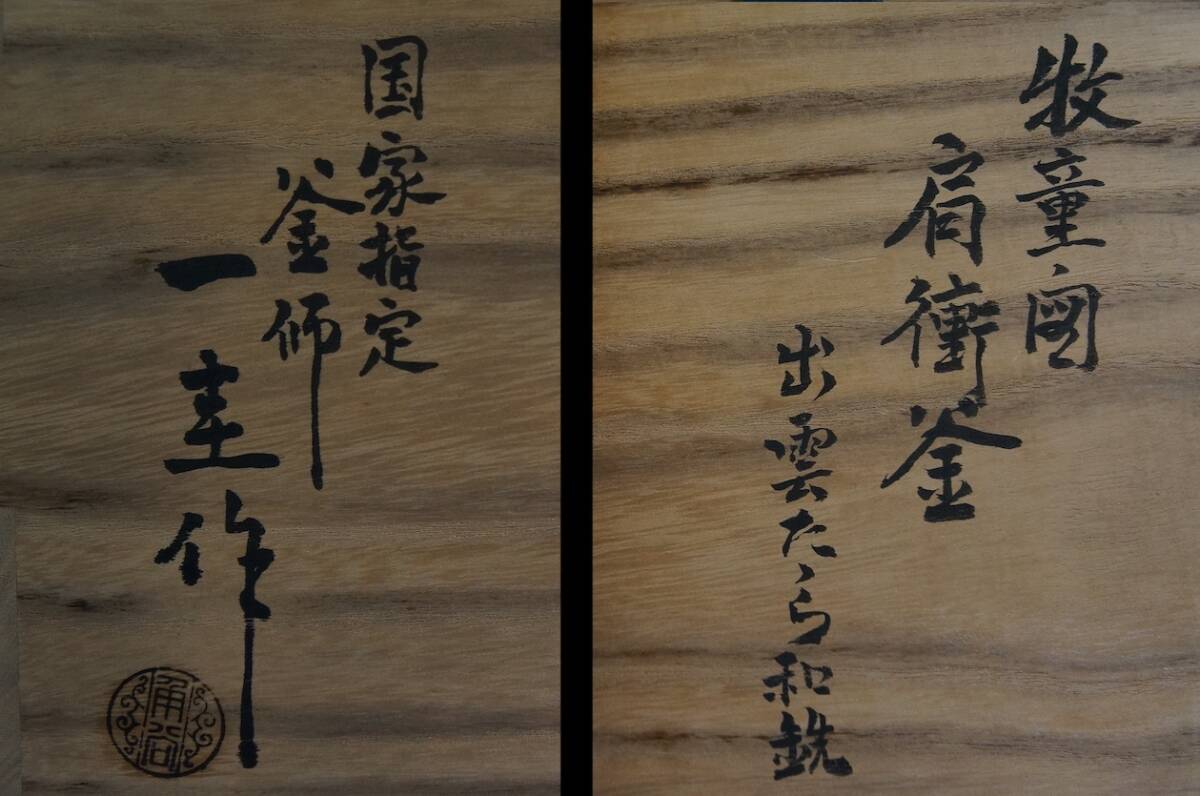 牧童圖
肩衝釜
出雲たゝら和銑
国家指定
釜師
一圭作
角谷